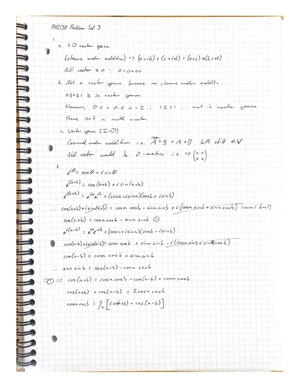 PHY2130 Problem Set 3
1.
a. 2D vector space
Closure under addition => (a+ib) + (c+id) = (a+c)+i(b+d)
Null vector is 0 ; 0=0+0i
b. Not a vector space because no closure under additi
is in vector space
However,
there isn't a null vector
c. Vector space (Z=0)
Closed under addition i.e. A+B = A+B both still
Null vector would be 0-matrix i.e. => (0 0 0 0)
2.
e^iθ = cosθ + i sinθ
e^i(a+b) = cos(a+b) + i sin(a+b)
e^i(a+b) = e^ia e^ib = (cosa+isina)(cosb+isinb)
cos(a+b)+isin(a+b) = cosa cosb - sina sinb + i(cosa sinb + sina cosb)
cos(a+b) = cosa cosb - sina sinb ①
e^i(a-b) = e^ia e^-ib = (cosa+isina)(cosb-isinb)
cos(a-b)+isin(a-b) = cosa cosb + sina sinb
cos(a-b) = cosa cosb + sina sinb
sina sinb = cos(a-b) - cosa cosb
①=> cos(a+b) = cosa cosb - cos(a-b) + cosa cosb
cos(a+b) + cos(a-b) = 2cosa cosb
cosa cosb = 1/2 [cos(a+b) + cos(a-b)]